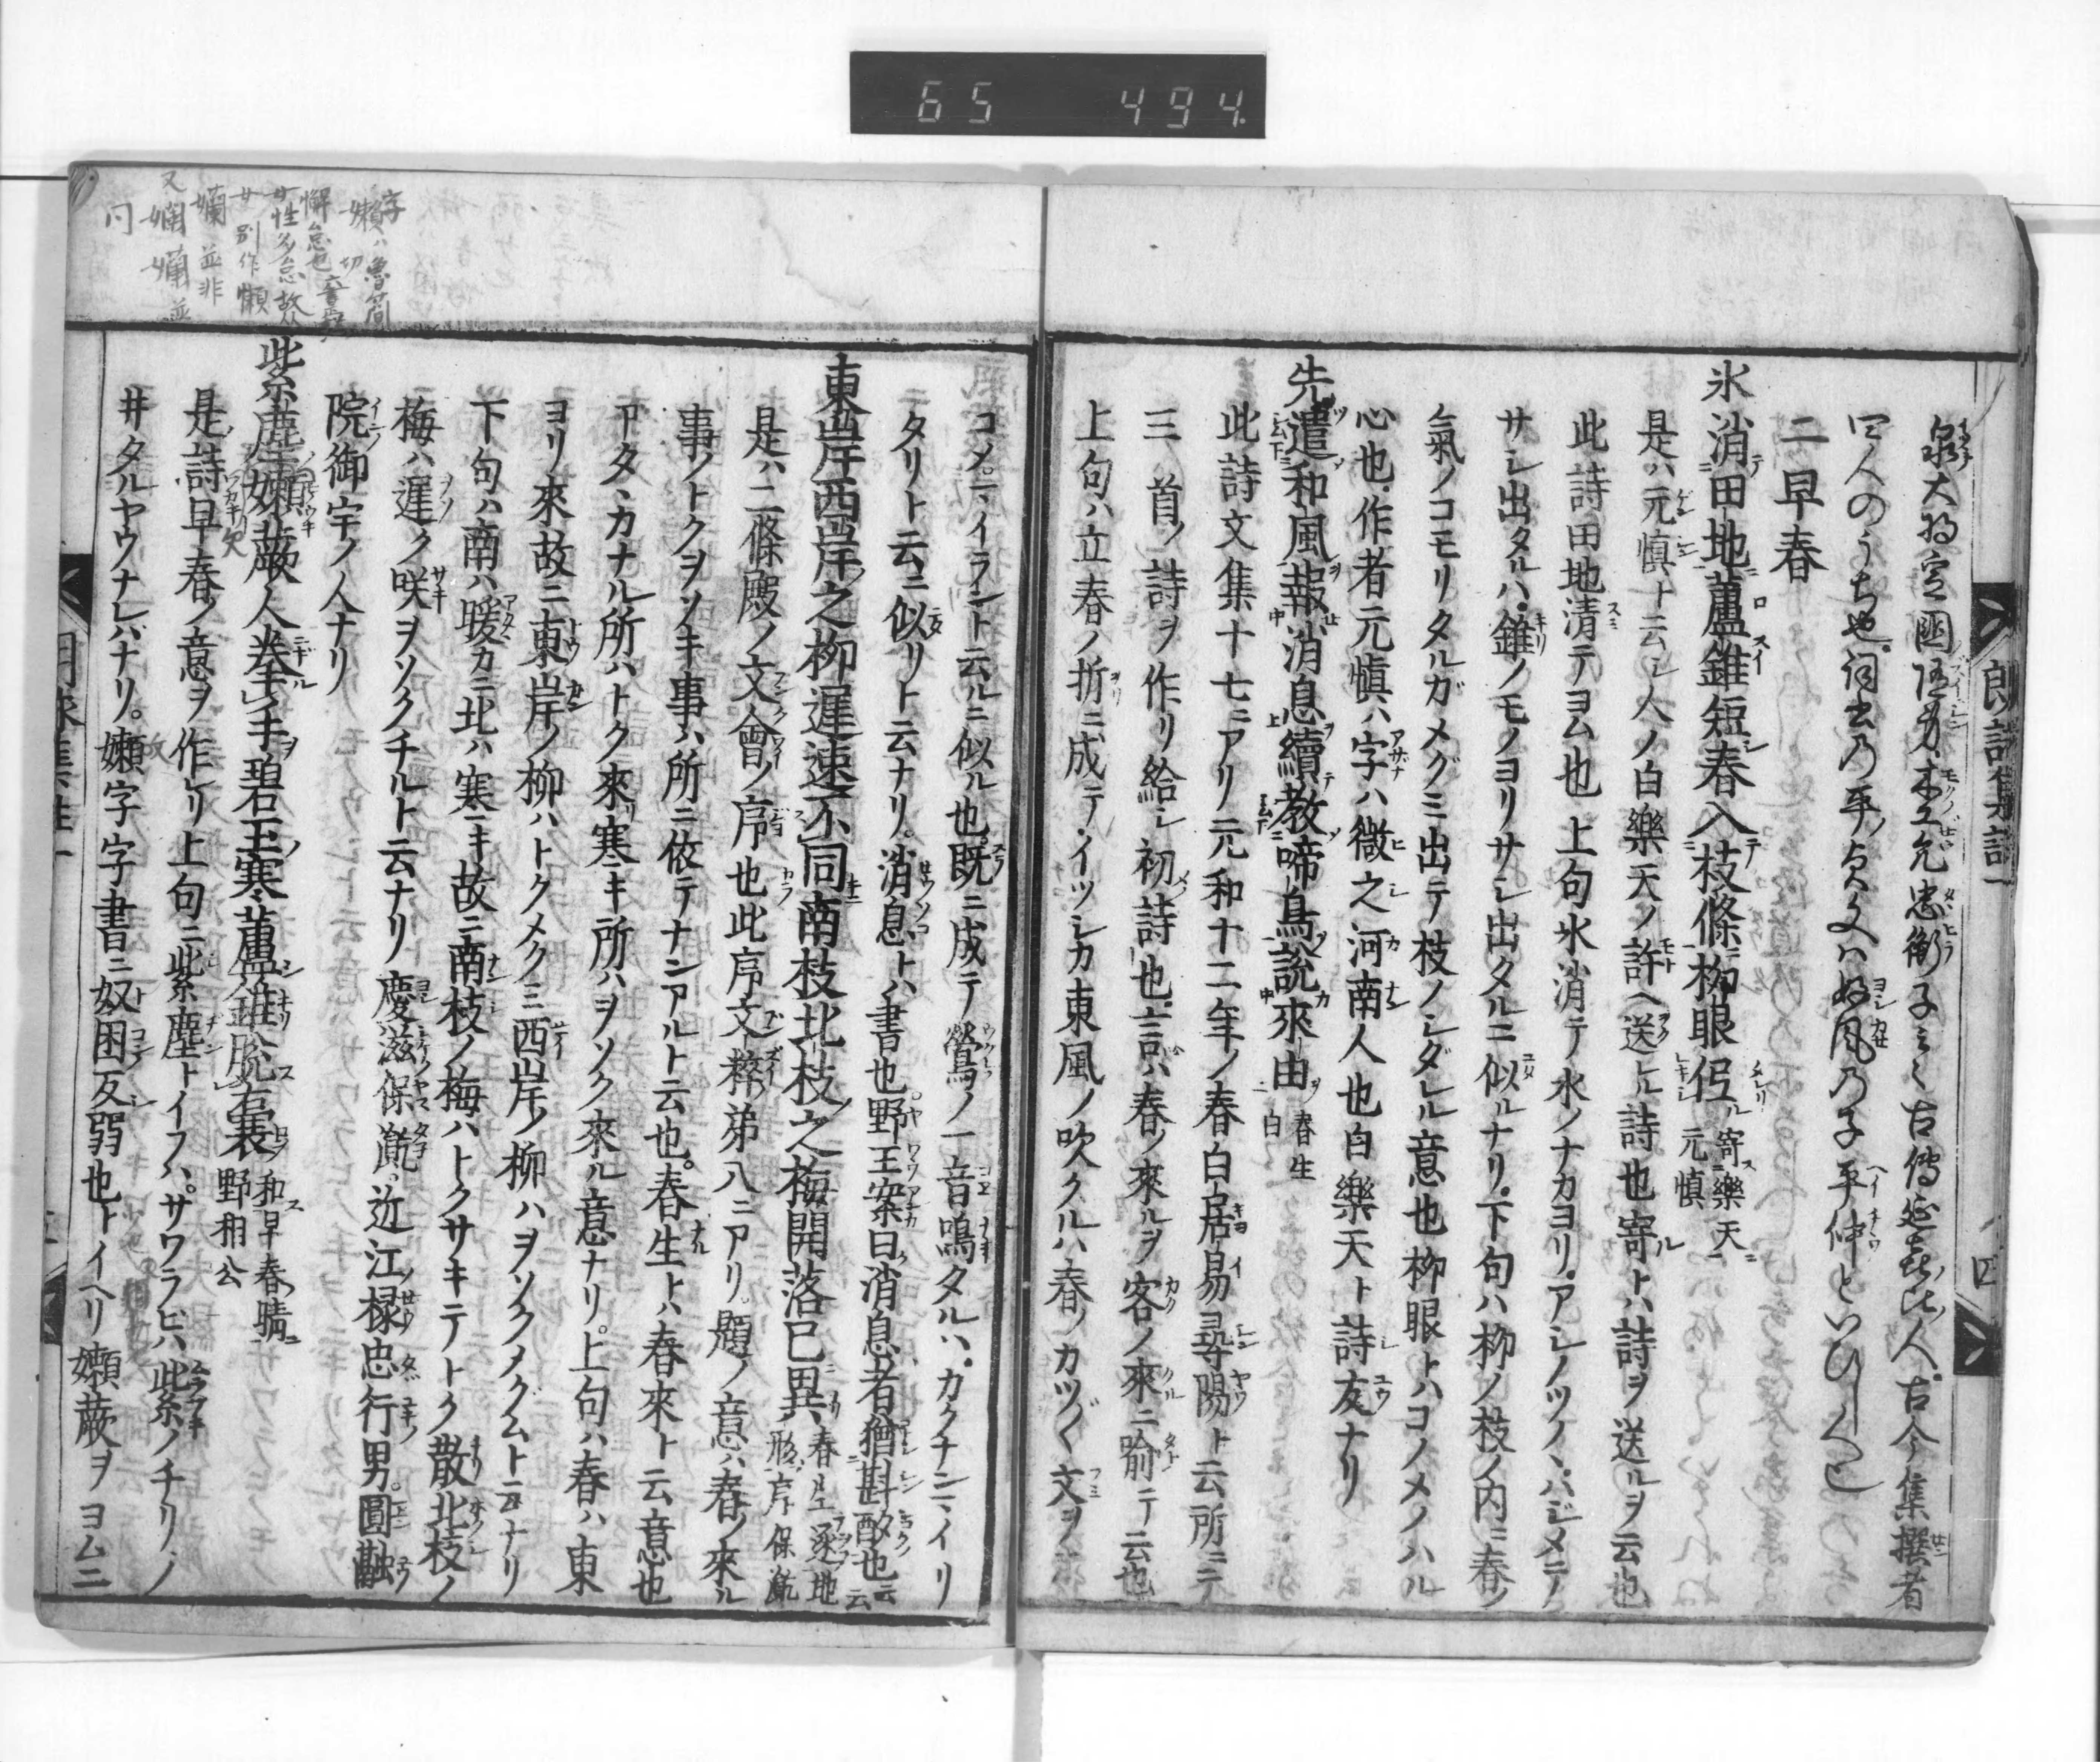 65 494.
朗詠集註一
四
泉大将定国随身、木工允忠衡子云々古伝延㐂比人。古今集撰者
四人のうち也。詞書乃平貞文ハ好風乃子平仲といひし人也
二早春
氷消田地蘆錐短春入枝條柳眼低 寄樂天 元慎
是ハ元慎ト云シ人ノ白樂天ノ許ヘ送レル詩也寄トハ詩ヲ送ルヲ云也
此詩田地清テヨム也上句氷消テ水ノナカヨリ、アシノツノ、ハジメニノ
サシ出タルハ、錐ノモノヨリサシ出タルニ似ルナリ。下句ハ柳ノ枝ノ内ニ春ノ
氣ノコモリタルガメグミ出テ枝ノシダレル意也柳眼トハコノメノハル
心也。作者元慎ハ字ハ微之河南人也白樂天ト詩友ナリ
先遣和風報消息續教啼鳥說來由 春生 白
此詩文集十七ニアリ元和十二年ノ春白居易尋陽ト云所ニテ
三首ノ詩ヲ作リ給シ初詩也。言ハ春ノ來ルヲ客ノ來ニ喻テ云也
上句ハ立春ノ折ニ成テ、イツシカ東風ノ吹クルハ春ノカツ〲文ヲ
コメニ、イラント云ルニ似ル也。既ニ成テ鶯ノ一音鳴タルハ、カクナン、イリ
タリト云ニ似リト云ナリ。消息トハ書也。野王案曰消息者猶斟酌也云云
東岸西岸之柳遲速不同南枝北枝之梅開落已異 春生逐地形序 保胤
是ハ二條殿ノ文會ノ序也此序文粹弟八ニアリ。題ノ意ハ春ノ來ル
事ノトクヲソキ事ハ所ニ依テナンアルト云也。春生トハ春來ト云意也
アタヽカナル所ハトク來リ寒キ所ハヲソク來ル意ナリ。上句ハ春ハ東
ヨリ來故ニ東岸ノ柳ハトクメクミ西岸ノ柳ハヲソクメグムト云ナリ
下句ハ南ハ暖カニ北ハ寒キ故ニ南枝ノ梅ハトクサキテトク散北枝ノ
梅ハ遲ク咲ヲソクチルト云ナリ 慶滋保胤。近江掾忠行男。圓融
院御宇ノ人ナリ
紫塵嬾蕨人拳手碧玉寒蘆錐脫囊 和早春晴 野相公
是詩早春ノ意ヲ作レリ上句ニ紫塵トイフハ。サワラビハ紫ノチリノ
井タルヤウナレバナリ。嬾字字書ニ奴困反弱也トイヘリ嬾蕨ヲヨムニ